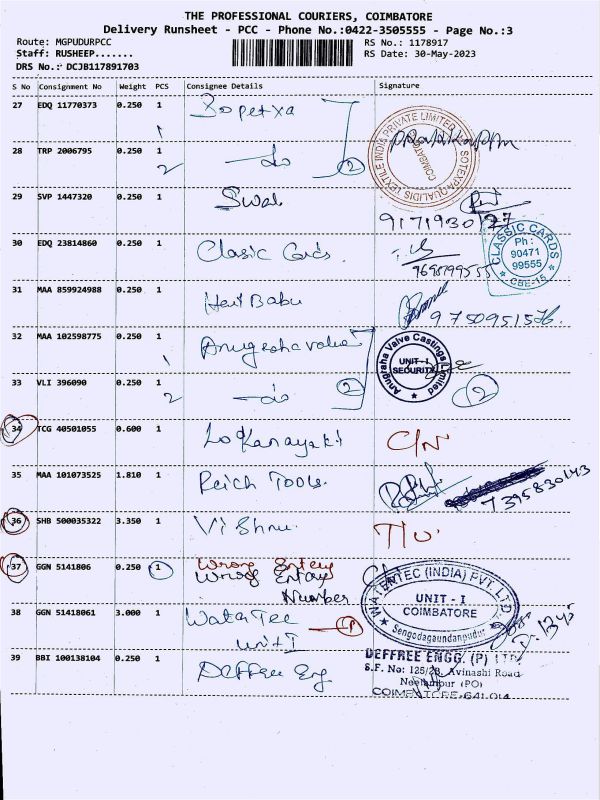 THE PROFESSIONAL COURIERS, COIMBATORE
Delivery Runsheet - PCC - Phone No.:0422-3505555 - Page No.:3
Route: MGPUDURPCC
RS No.: 1178917
Staff: RUSHEEP.......
RS Date: 30-May-2023
DRS No.: DCJB117891703
S No Consignment No Weight PCS Consignee Details Signature
27 EDQ 11770373 0.250 1
28 TRP 2006795 0.250 1 do 2
2
SOTEXPA QUALIDIS TEXTILE INDIA PRIVATE LIMITED
COIMBATORE
29 SVP 1447320 0.250 1
30 EDQ 23814860 0.250 1 Clasic Cards.
CLASSIC CARDS
Ph :
90471
99555
CBE-15
31 MAA 859924988 0.250 1 Hari Babu
9750951576.
32 MAA 102598775 0.250 1
Anugraha Valve Castings Limited
UNIT-I
SECURITY
33 VLI 396090 0.250 1 do 2 2
2
34 TCG 40501055 0.600 1 C/N
35 MAA 101073525 1.810 1 Reich Tools.
7395830143
36 SHB 500035322 3.350 1 Vishnu
37 GGN 5141806 0.250 1 Wrong Entry
Wrong Entry
Number
38 GGN 51418061 3.000 1 Water Tec
unit I
WATERTEC (INDIA) PVT. LTD.
UNIT - I
COIMBATORE
Sengodagaundanpudur
39 BBI 100138104 0.250 1 Deffree Eng
DEFFREE ENGG. (P) LTD.
S.F. No: 125/2B, Avinashi Road
Neelambur (PO)
COIMBATORE-641 014